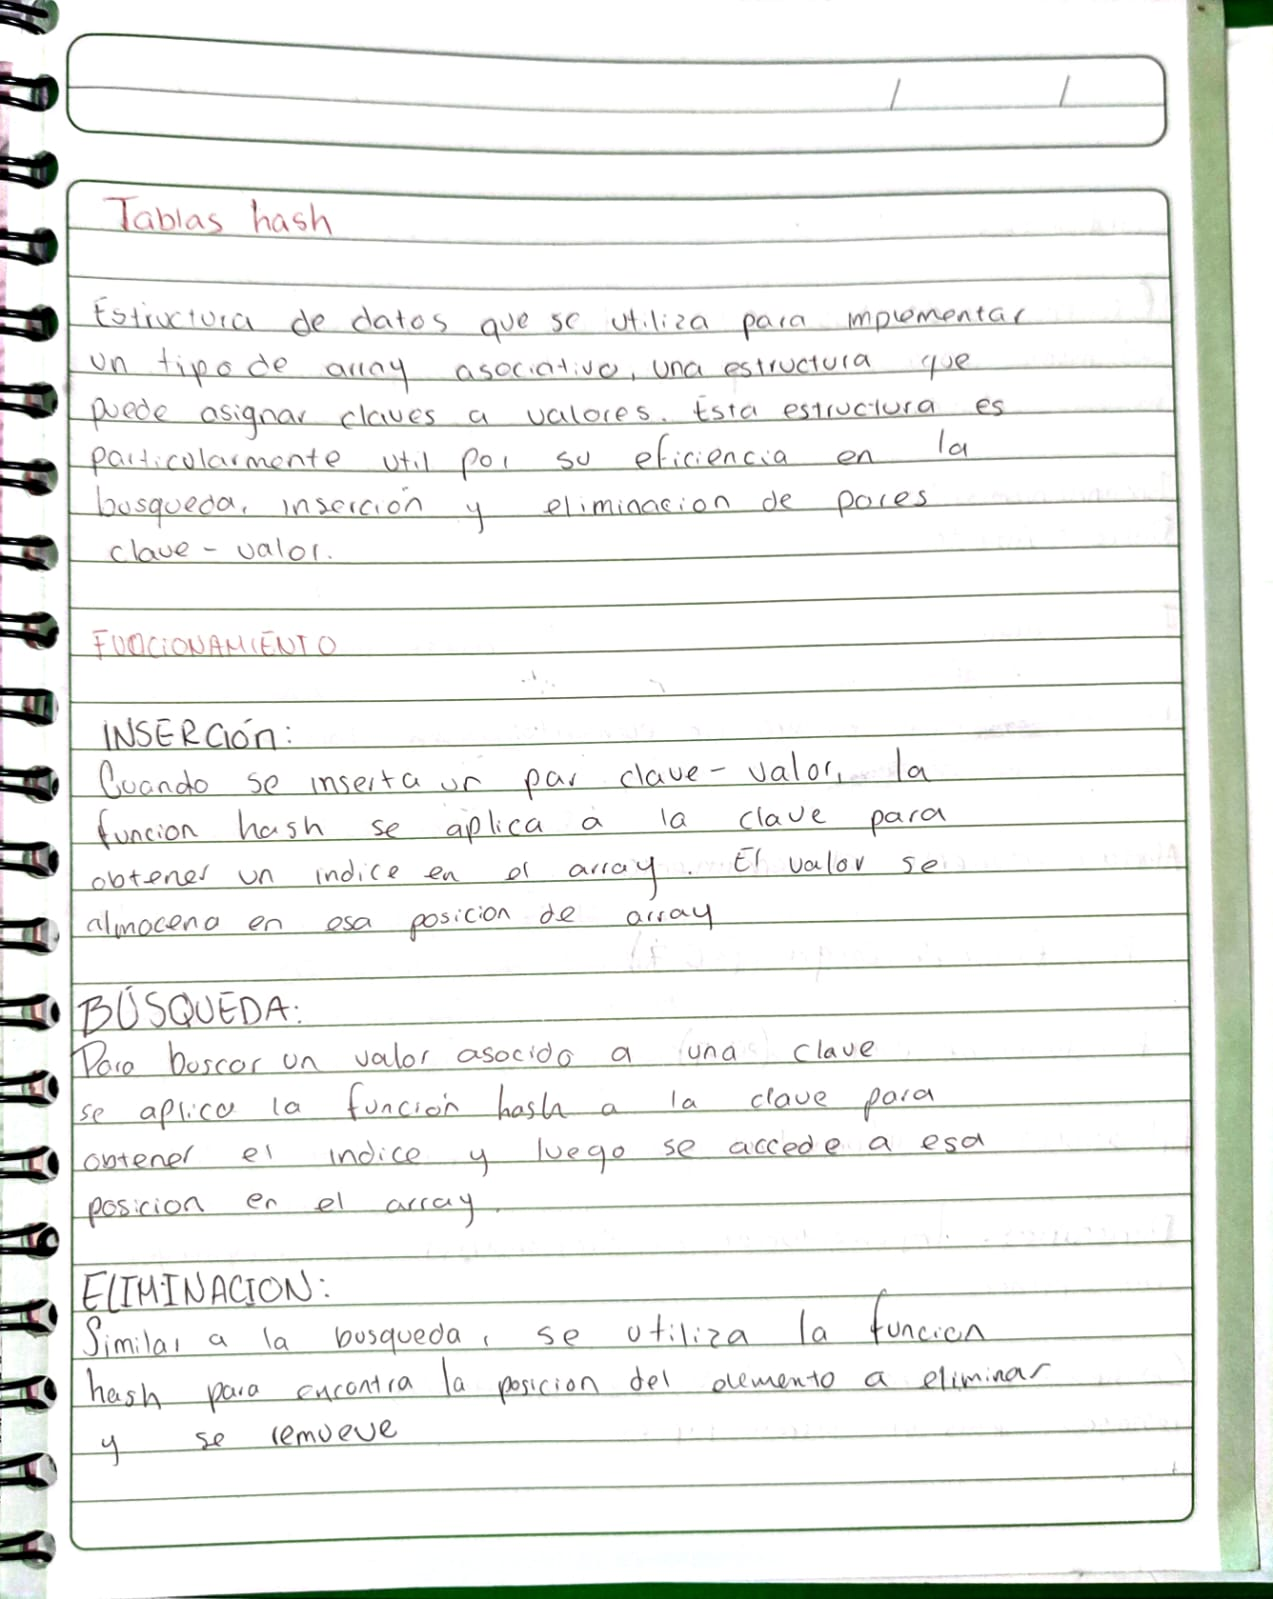 Tablas hash
Estructura de datos que se utiliza para implementar
un tipo de array asociativo, una estructura que
puede asignar claves a valores. Esta estructura es
particularmente util por su eficiencia en la
busqueda, inserción y eliminacion de pares
clave - valor.
FUNCIONAMIENTO
INSERCIÓN:
Cuando se inserta un par clave - valor, la
funcion hash se aplica a la clave para
obtener un indice en el array. El valor se
almacena en esa posicion de array
BÚSQUEDA:
Para buscar un valor asocido a una clave
se aplica la función hash a la clave para
obtener el indice y luego se accede a esa
posicion en el array.
ELIMINACION:
Similar a la busqueda, se utiliza la funcion
hash para encontra la posicion del elemento a eliminar
y se remueve